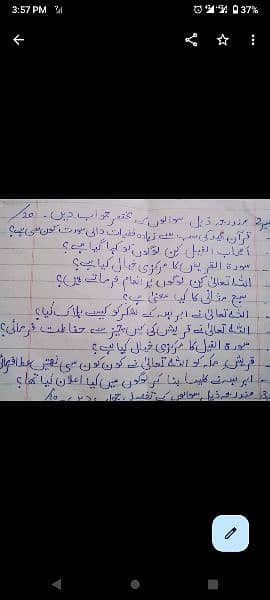 3:57 PM
37%
مندرجہ ذیل سوالوں کے مختصر جواب دیں۔ 20/
قرآن مجید کی سب سے زیادہ فضیلت والی سورت کون سی ہے؟
اصحاب الفیل کن لوگوں کو کہا گیا ہے؟
سورۃ القریش کا مرکزی خیال کیا ہے؟
اللہ تعالیٰ کن لوگوں پر انعام فرماتے ہیں؟
سبع مثانی کا کیا معنی ہے؟
اللہ تعالیٰ نے ابرہہ کے لشکر کو کیسے ہلاک کیا؟
اللہ تعالیٰ نے قریش کی کس چیز سے حفاظت فرمائی؟
سورۃ الفیل کا مرکزی خیال کیا ہے؟
قریش مکہ کو اللہ تعالیٰ نے کون کون سی نعتیں عطا فرمائی
ابرہہ نے کلیسا بنا کر لوگوں میں کیا اعلان کیا تھا؟
مندرجہ ذیل سوالوں کے تفصیلی